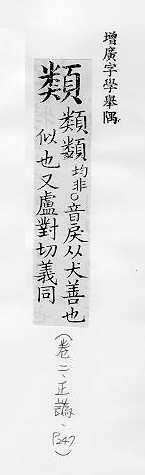 增廣字學舉隅
類類𩔖均非○音戾从犬善也
似也又盧對切義同
(卷二、正譌、P247)